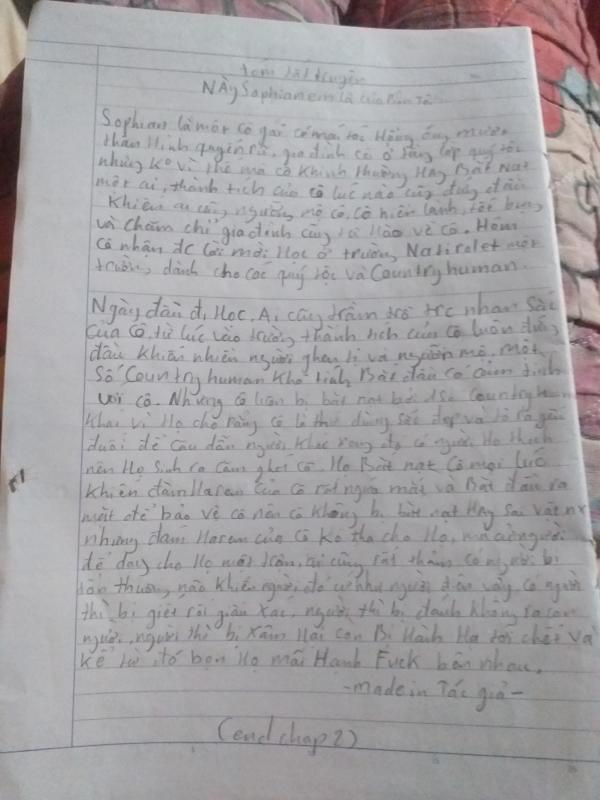 tóm tắt truyện
NÀY Sophian em là của Bọn Ta
Sophian là một cô gái có mái tóc Hồng óng mượt
thân Hình quyến rũ, gia đình cô ở tầng lớp quý tộc
nhưng ko vì thế mà cô khinh thường HAy Bắt Nạt
một ai, thành tích của cô lúc nào cũng đứng đầu
Khiến ai cũng ngưỡng mộ cô, cô hiền lành, tốt bụng
và chăm chỉ, gia đình cũng tự Hào về cô. Hôm
cô nhận đc lời mời Học ở trường Natirolet một
trường dành cho các quý tộc và Countryhuman.
Ngày đầu đi Học, Ai cũng trầm trồ trc nhan Sắc
của cô, từ lúc vào trường thành tích của cô luôn đứng
đầu khiến nhiên người ghen tị và ngưỡn mộ, một
Số Countryhuman khó tính Bắt đầu có cảm tình
với cô. Nhưng cô luôn bị bắt nạt bởi Countryhum
khác vì Họ cho rằng cô là thứ dùng sắc đẹp và tỏ ra yếu
đuối để câu dẫn người khác trong đó có người Họ thích
nên Họ Sinh ra căm ghét cô. Họ Bắt nạt cô mọi lúc
khiến đàm Harem của cô rất ngứa mắt và Bắt đầu ra
mặt để bảo vệ cô nên cô không bị bắt nạt HAy Sai vặt nx
nhưng đám Harem của cô ko tha cho Họ, mà
để dạy cho Họ một trận, ai cũng rất thảm có người bị
tổn thương não khiến người đó cứ như người điên vậy, có người
thì bị giết rồi giấu xác, người thì bị đánh không ra con
người, người thì bị xâm Hại còn Bị Hành Hạ tới chết và
kể từ đó bọn Họ mãi Hạnh Fuck bên nhau.
-made in Tác giả-
(end chap 2)